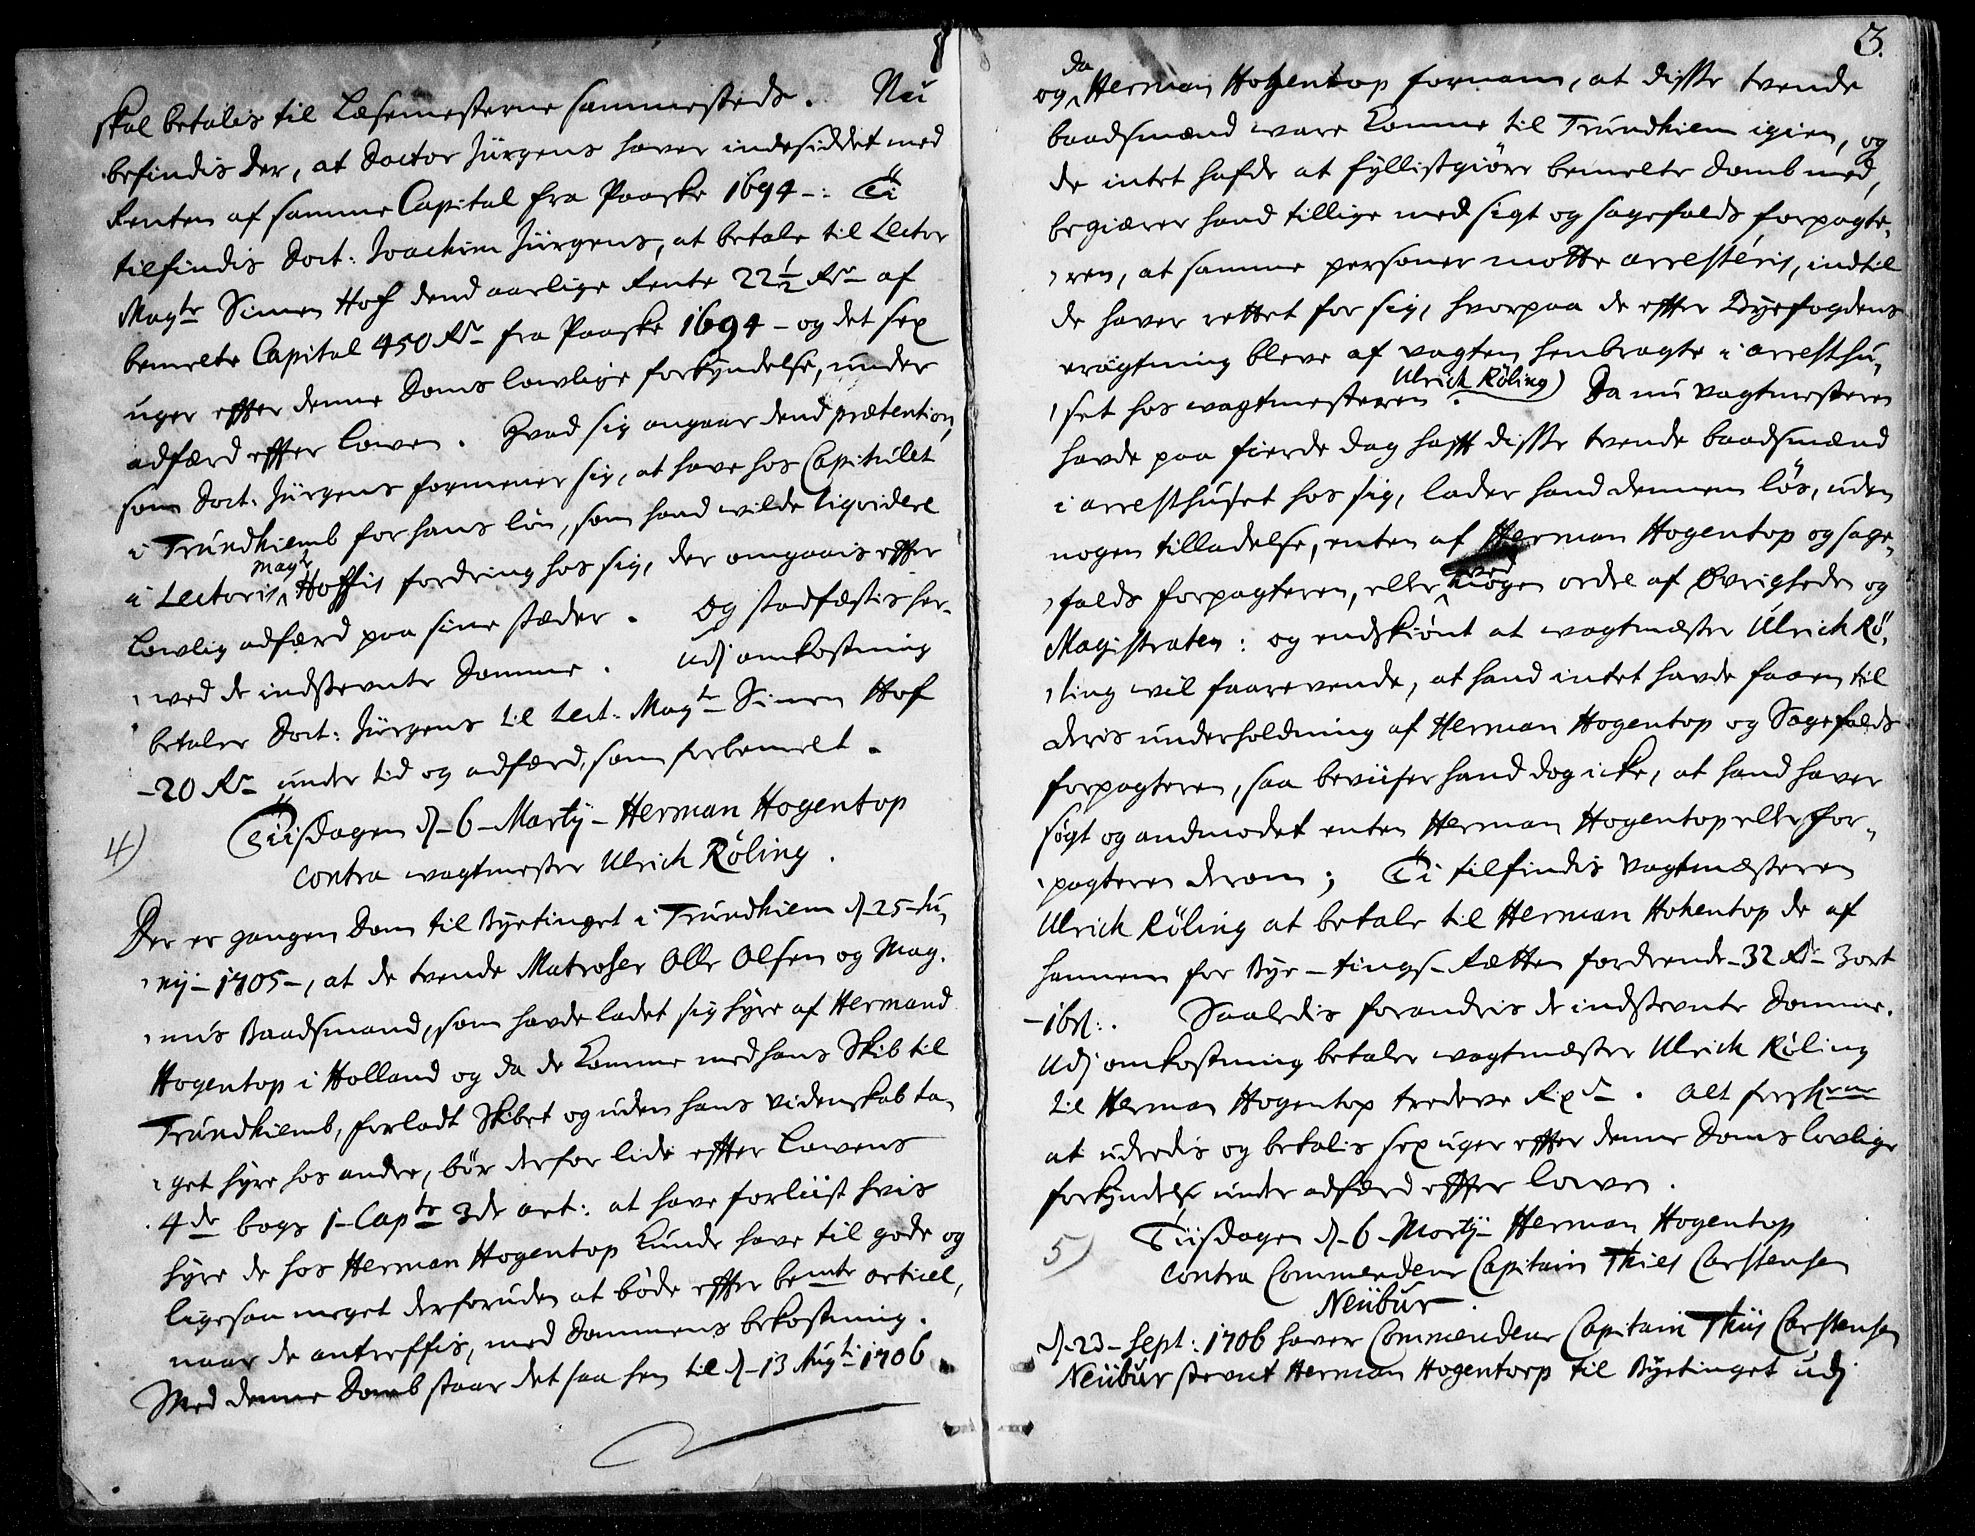 skal betalis til Læsemesterne sammesteds. Nu
befindis der, at Doctor Jürgens haver indesiddet med
Renten af samme Capital fra Paaske 1694 -: Ti
tilfindis Doct: Joachim Jürgens, at betale til Lector
Magtr Simen Hof dend aarlige Rente 22½ Rdr af
bemelte Capital 450 Rdr fra Paaske 1694 - og det sex
uger effter denne Doms lovlige forkyndelse, under
adfærd effter Loven. Hvad sig angaar dend prætention,
som Doct: Jürgens formener sig, at have hos Capitulet
i Trundhiemb for hans løn, som hand wilde liqvidere
i Lectoris Magtr Hoffis fordring hos sig, der omgaais effter
Lovlig adfærd paa sine stæder. Og stadfæstis her-
ved de indstevnte Domme. Udj omkostning
betaler Doct: Jürgens til Lect: Magtr Simen Hof
-20 Rdr under tid og adfærd, som forbemelt.
4) Tiisdagen d. 6 Martij Herman Hogentop
contra wagtmester Ulrich Røling.
Der er gangen Dom til Byetinget i Trundhiem d. 25 Ju-
nij 1705, at de tvende Matroser Olle Olsen og Mag-
nus Baadsmand, som havde ladet sig hyre af Hermand
Hogentop i Holland og da de komme med hans Skib til
Trundhiemb, forladt Skibet og uden hans videnskab ta-
get hyre hos andre, bør derfor lide effter Lovens
4de bogs 1 Capts 3de art: at have forliist hvis
hyre de hos Herman Hogentop kunde have til gode og
ligesaa meget derforuden at bøde effter bemte articel,
naar de antreffis, med Dommens bekostning.
Med denne Domb staar det saa hen til d. 13 Augti 1706
3.
og da Herman Hogentop fornam, at disse tvende
baadsmænd ware komme til Trundhiem igien, og
de intet hafde at fyllistgiøre bemelte Domb med,
begiærer hand tillige med sigt og sagefalds forpagte-
ren, at samme personer motte arresteris, indtil
de haver rettet for sig, hvorpaa de effter Byefogdens
eragtning bleve af vagten henbragte i arresthu-
set hos wagtmesteren Ulrich Røling. Da nu vagtmesteren
havde paa fierde dag hafft disse tvende baadsmænd
i arresthuset hos sig, lader hand dennem løs, uden
nogen tilladelse, enten af Herman Hogentop og sage-
falds forpagteren, eller ved nogen ordre af Øvrigheden og
Magistraten: og endskiønt at wagtmester Ulrich Rø-
ling vil faarevende, at hand intet havde faaen til
deris underholdning af Herman Hogentop og Sagefalds
forpagteren, saa beviiser hand dog icke, at hand haver
søgt og andmodet enten Herman Hogentop eller for-
pagteren derom; Ti tilfindis Vagtmæsteren
Ulrich Röling at betale til Herman Hohentop de af
hannem for Bye-tings-Rætten fordrende 32 Rdr 3 ort
-16 s:. Saaledis forandris de indstevnte Domme.
Udj omkostning betaler wagtmæster Ulrich Røling
til Herman Hogentop tredeve Rixdr. Alt
at uderedis og betalis sex uger effter denne Doms lovlige
forkyndelse under adfærd effter Loven.
5) Tiisdagen d. 6 Martij Herman Hogentop
contra Commendeur Capitain Thies Carstensen
Neübur.
d. 23 Sept: 1706 haver Commendeur Capitain Thiis Carstensen
Neübur stevnt Herman Hogentorp til Byetinget udj